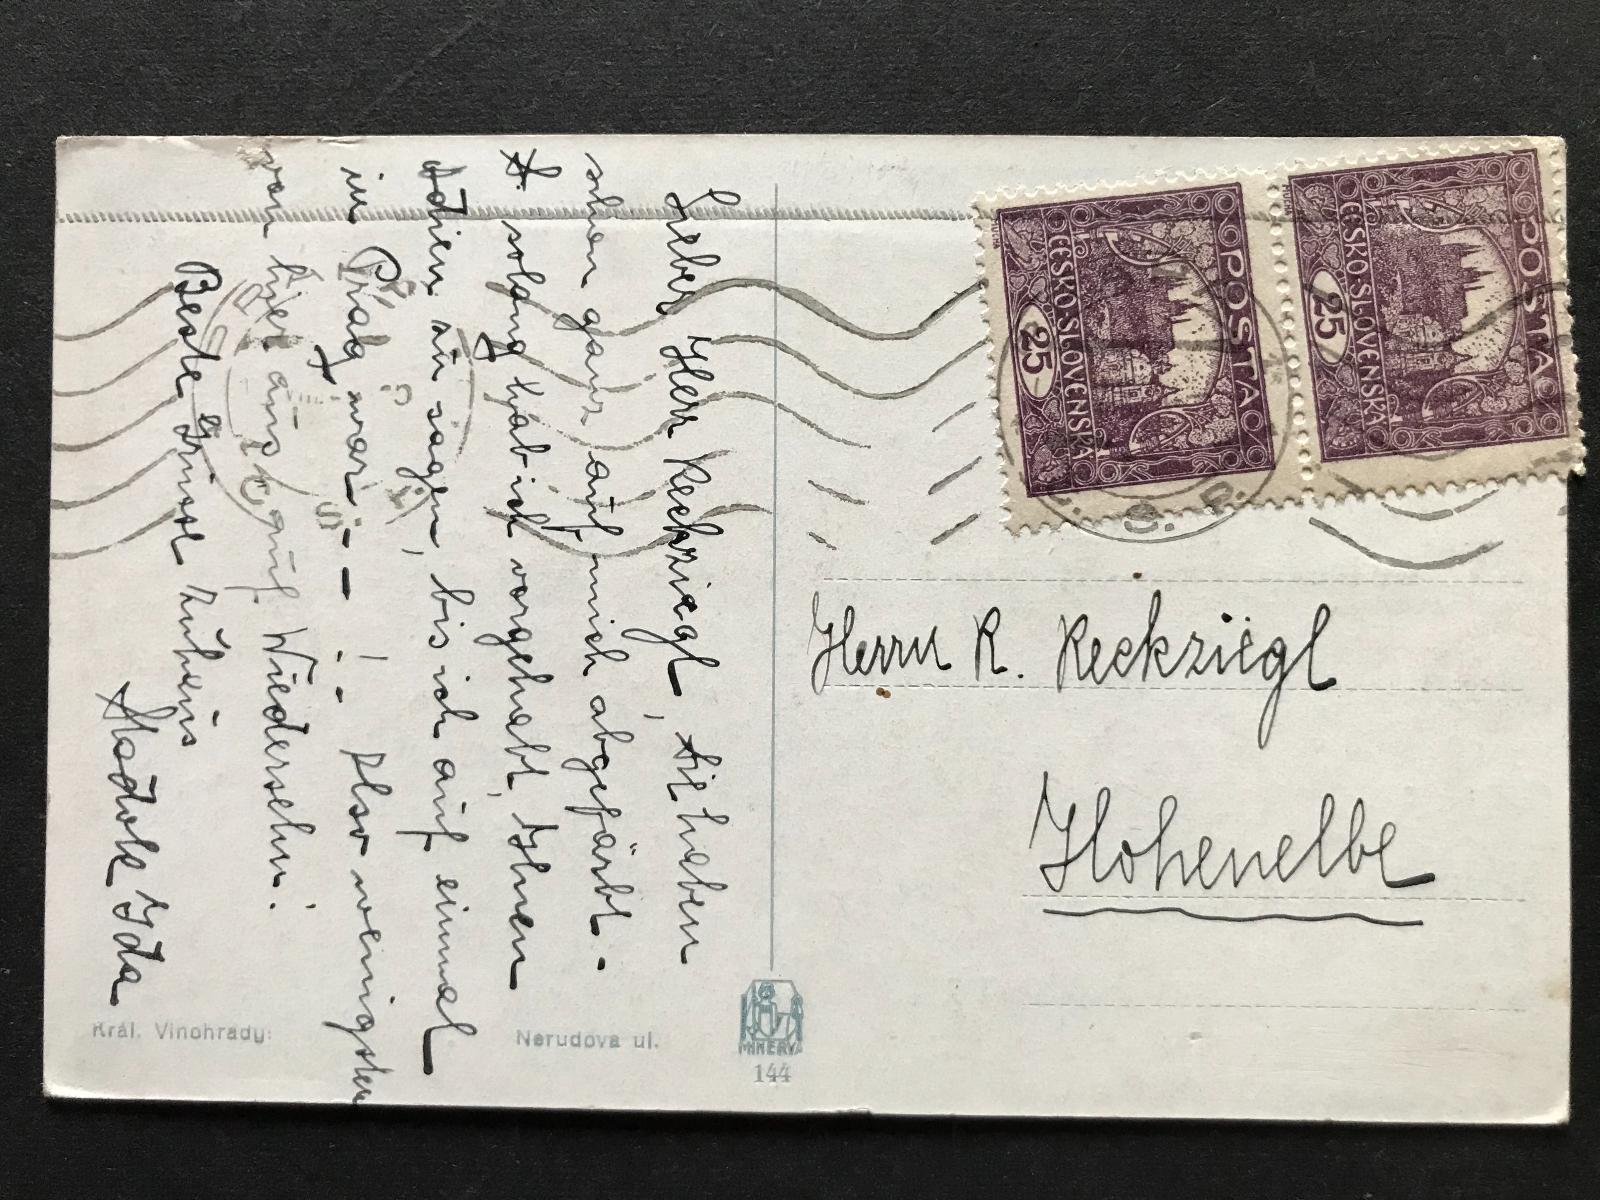 Lieber Herr Reckziegl, Sie haben
schon ganz auf mich abgefärbt. -
solang hab ich vorgehabt, Ihnen
Adieu zu sagen, bis ich auf einmal
in Prag war - - ! Also wenigsten
von hier aus auf Wiedersehn!
Beste Grüsse zuhaus
Ida
Král. Vinohrady:
Nerudova ul.
MINERVA
144
POSTA
ČESKO-SLOVENSKÁ
25
POSTA
ČESKO-SLOVENSKÁ
25
Herrn R. Reckziegl
Hohenelbe